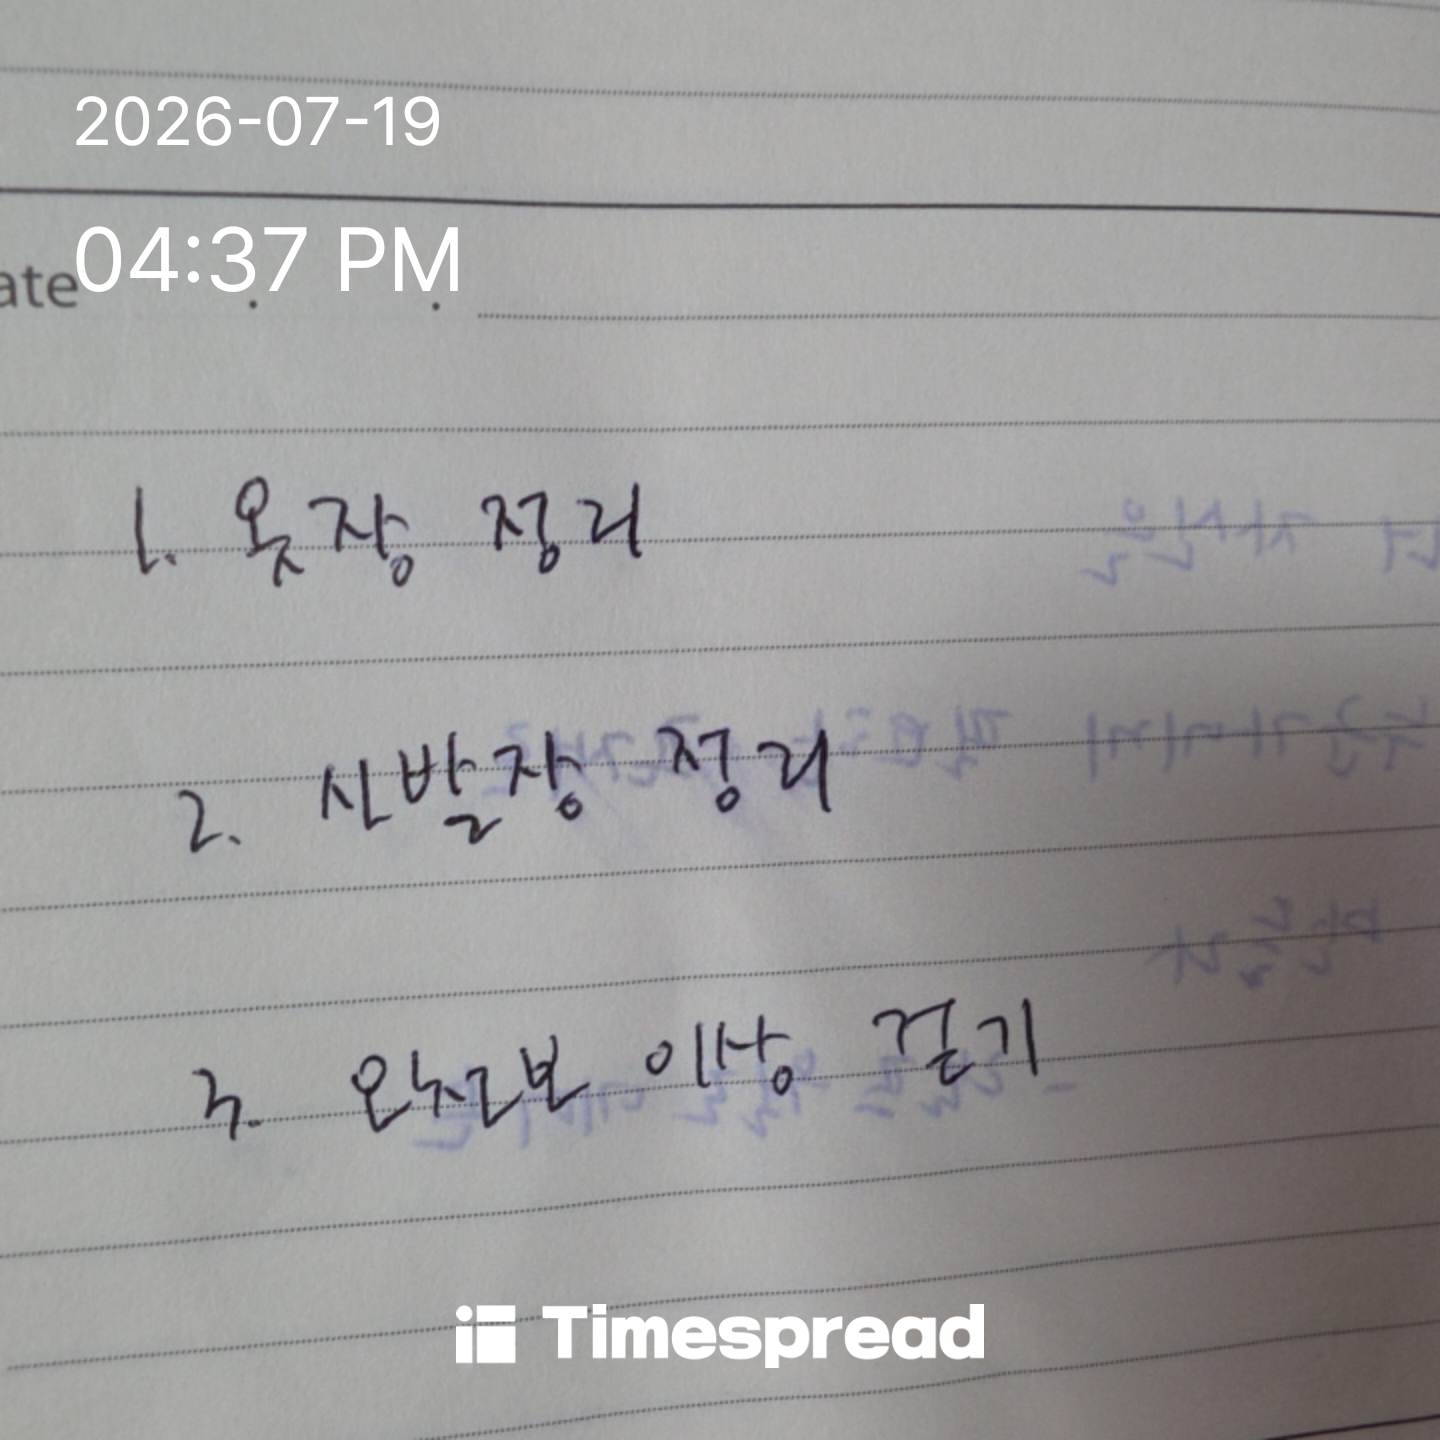 2026-07-19
04:37 PM
ate . .
1. 옷장 정리
2. 신발장 정리
3. 오천보 이상 걷기
Timespread